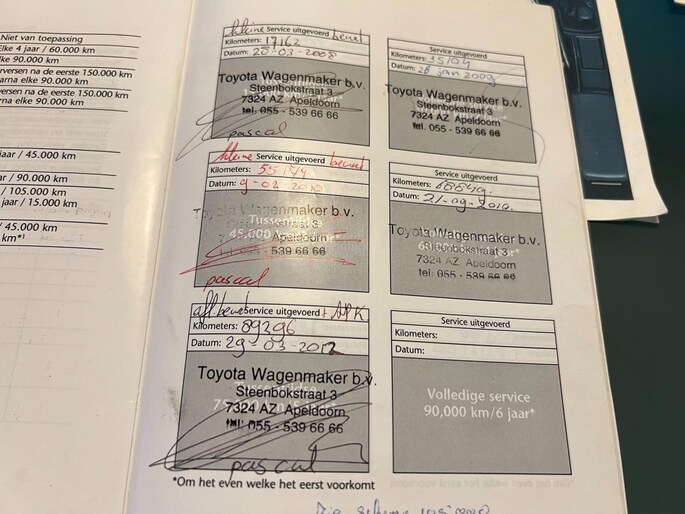 Niet van toepassing
Elke 4 jaar / 60.000 km
elke 90.000 km
verversen na de eerste 150.000 km
arna elke 90.000 km
verversen na de eerste 150.000 km
arna elke 90.000 km
jaar / 45.000 km
jaar / 90.000 km
/ 105.000 km
jaar / 15.000 km
/ 45.000 km
km*¹
kleine Service uitgevoerd beurt
Kilometers: 17162
Datum: 20-03-2008
Toyota Wagenmaker b.v.
Steenbokstraat 3
7324 AZ Apeldoorn
tel. 055 - 539 66 66
pascal
Service uitgevoerd
Kilometers:
Datum: jan 2009
Toyota Wagenmaker b.v.
Steenbokstraat 3
7324 AZ Apeldoorn
tel. 055 - 539 66 66
kleine Service uitgevoerd beurt
Kilometers:
Datum: 9-02-2010
Toyota Wagenmaker b.v.
Tussent
45,000
Apeldoorn
055 - 539 66 66
pascal
Service uitgevoerd
Kilometers:
Datum: 21-09-2010
Toyota Wagenmaker b.v.
Steenbokstraat 3
7324 AZ Apeldoorn
tel. 055 - 539 66 66
afl. beurt Service uitgevoerd + APK
Kilometers: 89296
Datum: 29-03-2012
Toyota Wagenmaker b.v.
Steenbokstraat 3
7324 AZ Apeldoorn
tel. 055 - 539 66 66
pascal
Service uitgevoerd
Kilometers:
Datum:
Volledige service
90,000 km/6 jaar*
*Om het even welke het eerst voorkomt